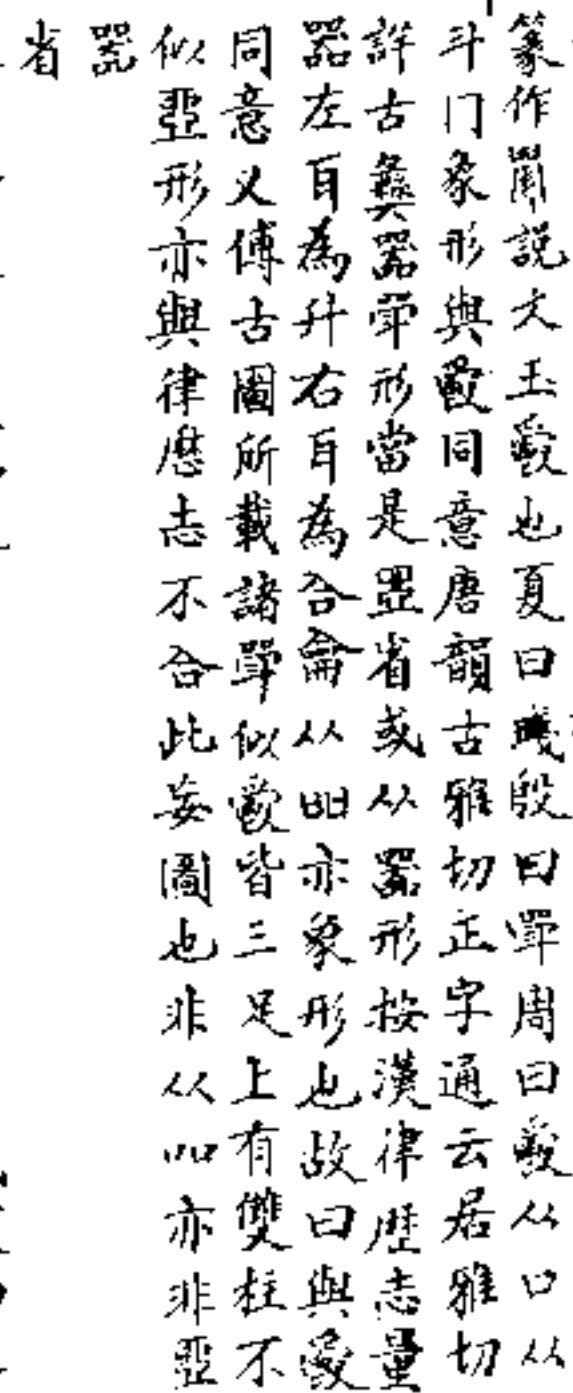 篆作斝説文玉爵也夏曰琖殷曰斝周曰爵从吅从
斗冂象形與爵同意唐韻古雅切正字通云居雅切
詳古彝器斝形當是斝省或从器形按漢律歷志量
器左耳為升右耳為合龠从吅亦象形也故曰與爵
同意又傅古圖所載諸斝似爵皆三足上有雙柱不
似亞形亦與律歷志不合此妄圖也非从吅亦非亞
器
省